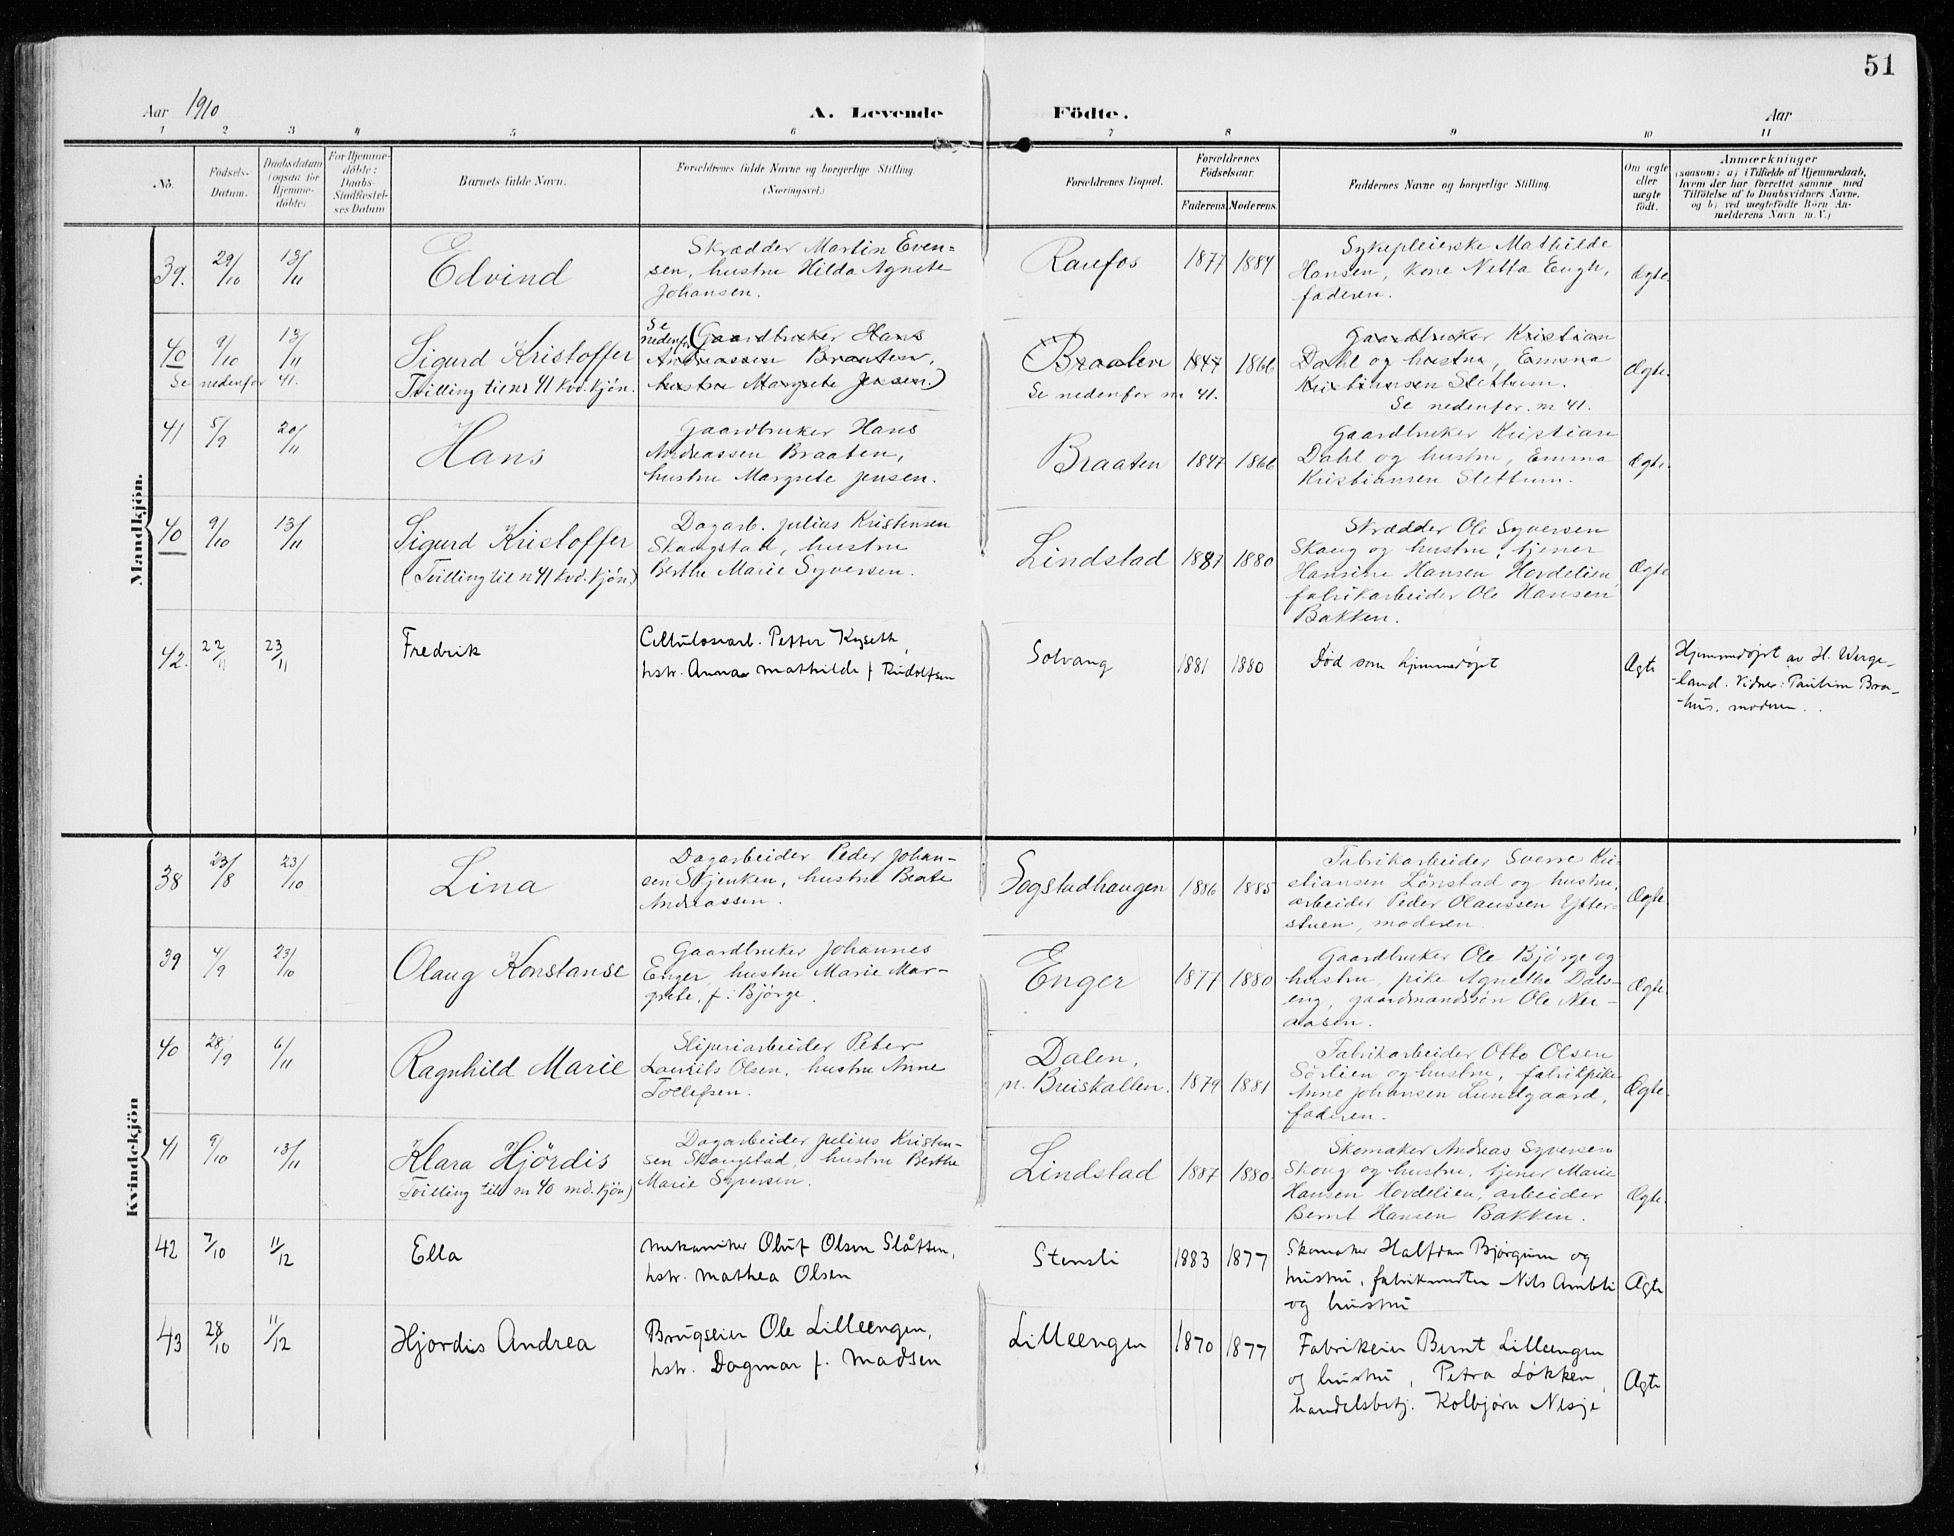 51
Aar 1910
A. Levende Födte.
Aar
1 2 3 4 5 6 7 8 9 10 11
No.
Födsels-
Datum.
Daabsdatum
(ogsaa for
Hjemme-
döbte)
For Hjemme-
döbte:
Daabs-
Stadfæstel-
ses Datum
Barnets fulde Navn.
Forældrenes fulde Navne og borgerlige Stilling
(Næringsvei.)
Forældrenes Bopæl.
Forældrenes
Födselsaar.
Faderens. Moderens.
Faddernes Navne og borgerlige Stilling.
Om ægte
eller
uægte
født.
Anmærkninger
(saasom: a) i Tilfælde af Hjemmedaab,
hvem der har forrettet samme med
Tilföielse af to Daabsvidners Navne,
og b) ved uægtefödte Börn An-
melderens Navn m. V.)
Mandkjön.
39. 29/10 13/11
Edvind
Skrædder Martin Even-
sen, hustru Hilda Agnete
Johansen.
Raufos
1877 1884
Sykepleierske Mathilde
Hansen, kone Netta Engh,
faderen.
Ægte.
40 9/10 13/11
Se nedenfor 41.
Sigurd Kristoffer
Tvilling til nr 41 kvd. kjøn.
Se
nedenfor (Gaardbruker Hans
Andreassen Braaten,
hustru Margrete Jensen.)
Braaten
Se nedenfor nr 41.
1847 1866
Gaardbruker Kristian
Dahl og hustru, Emma
Kristiansen Slettum.
Se nedenfor. nr 41.
Ægte.
41 5/9 20/11
Hans
Gaardbruker Hans
Andreassen Braaten,
hustru Margrete Jensen.
Braaten
1847 1866
Gaardbruker Kristian
Dahl og hustru, Emma
Kristiansen Slettum.
Ægte.
40 9/10 13/11
Sigurd Kristoffer
(Tvilling til n 41 kvd. kjøn.)
Dagarb. Julius Kristensen
Skaugstad, hustru
Berthe Marie Syversen.
Lindstad
1887 1880
Skrædder Ole Syversen
Skaug og hustru, tjener
Hansine Hansen Hovdelien,
fabrikarbeider Ole Hansen
Bakken.
Ægte
42. 22/11 23/11
Fredrik
Cellulosearb. Petter Kyseth,
hstr. Anna Mathilde f Rudolfsen
Solvang
1881 1880
Død som hjemmedøpt
Ægte
Hjemmedøpt av H. Werge-
-land. Vidner: Pauline Bra-
-hus, moderen.
Kvindekjön
38 23/8 23/10
Lina
Dagarbeider Peder Johan-
sen Skjenken, hustru Beate
Andreassen.
Sogstadhaugen
1886 1885
Fabrikarbeider Sverre Kri-
stiansen Lønstad og hustru,
arbeider Peder Olaussen Ytter-
stuen, moderen.
Ægte.
39 4/9 23/10
Olaug Konstanse
Gaardbruker Johannes
Enger, hustru Marie Mar-
grete, f. Bjørge.
Enger
1877 1880
Gaardbruker Ole Bjørge og
hustru, pike Agnethe Dals-
eng, gaardmandssøn Ole Ner-
aasen.
Ægte.
40 28/9 6/11
Ragnhild Marie
Sliperiarbeider Peter
Laurits Olsen, hustru Anne
Tollefsen.
Dalen,
n. Breiskallen.
1879 1881
Fabrikarbeider Otto Olsen
Sørlien og hustru, fabrikpike
Anne Johansen Lundgaard,
faderen.
Ægte.
41 9/10 13/11
Klara Hjørdis
Tvilling til nr 40 md. kjøn)
Dagarbeider Julius Kristen-
sen Skaugstad, hustru Berthe
Marie Syversen.
Lindstad
1887 1880.
Skomaker Andreas Syversen
Skoug og hustru, tjener Marie
Hansen Hovdelien, arbeider
Bernt Hansen Bakken.
Ægte.
42 7/10 11/12
Ella
Mekaniker Oluf Olsen Slåtten,
hstr. Mathea Olsen
Stensli
1883 1877
Skomaker Halfdan Bjørgum og
hustru, fabrikmester Nils Ambli
og hustru
Ægte
43 28/10 11/12
Hjørdis Andrea
Brugseier Ole Lilleengen,
hstr. Dagmar f. Madsen
Lilleengen
1870 1877
Fabrikeier Bernt Lilleengen
og hustru, Petra Løkken,
handelsbetj. Kolbjørn Nesje
Ægte